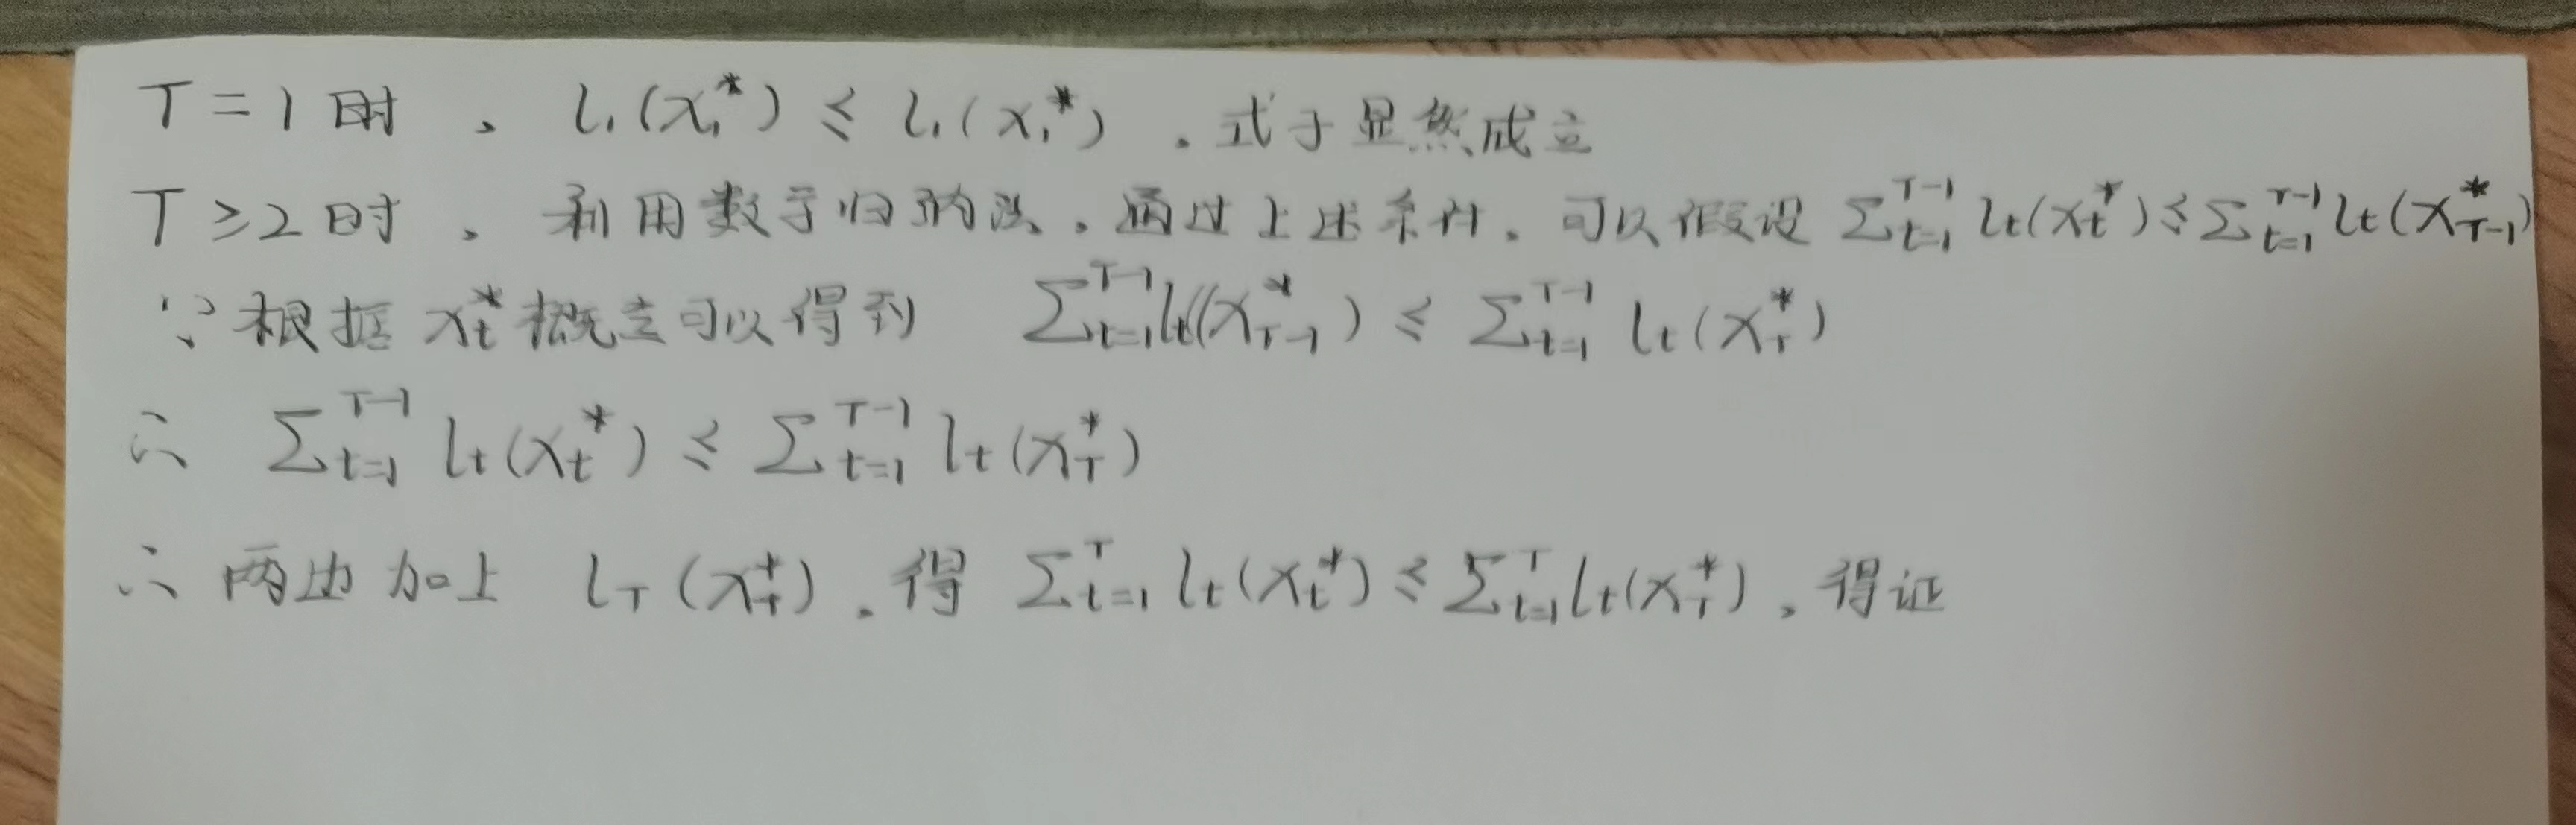 T=1时，l₁(x₁*) ≤ l₁(x₁*)，式子显然成立
T≥2时，利用数学归纳法，通过上述条件，可以假设 ∑_{t=1}^{T-1} l_t(x_t*) ≤ ∑_{t=1}^{T-1} l_t(x_{T-1}*)
∵根据 x_t* 概念可以得到 ∑_{t=1}^{T-1} l_t(x_{T-1}*) ≤ ∑_{t=1}^{T-1} l_t(x_T*)
∴ ∑_{t=1}^{T-1} l_t(x_t*) ≤ ∑_{t=1}^{T-1} l_t(x_T*)
∴ 两边加上 l_T(x_T*)，得 ∑_{t=1}^{T} l_t(x_t*) ≤ ∑_{t=1}^{T} l_t(x_T*)，得证